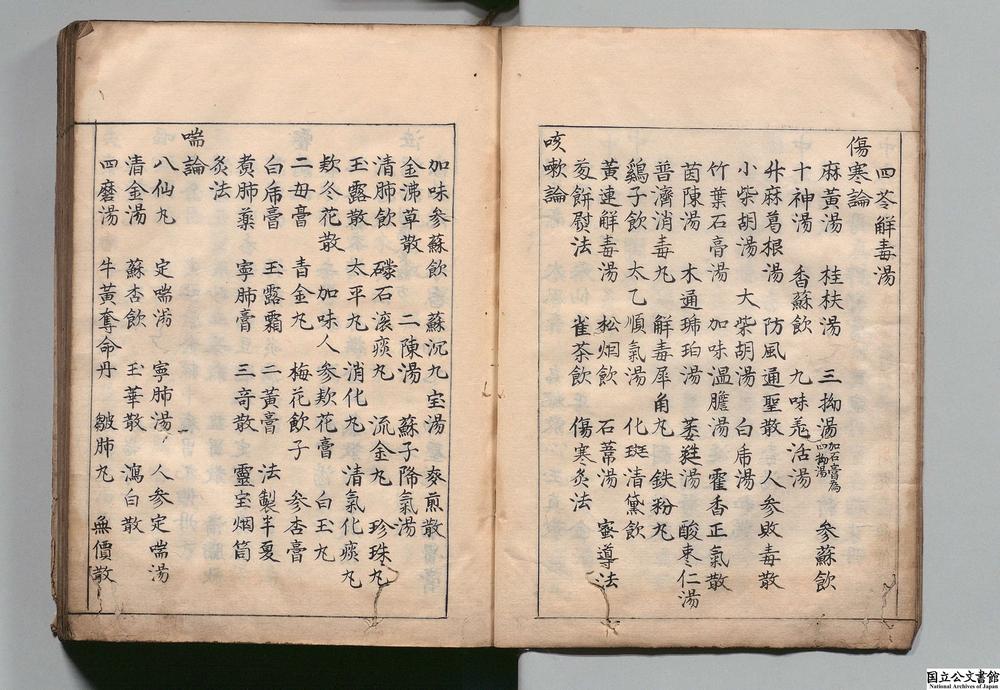 四苓觧毒湯
傷寒論
麻黄湯 桂枝湯 三拗湯加石膏為四拗湯 参蘇飲
十神湯 香蘇飲 九味羗活湯
升麻葛根湯 防風通聖散 人参敗毒散
小柴胡湯 大柴胡湯 白乕湯
竹葉石膏湯 加味温膽湯 霍香正氣散
茵陳湯 木通琥珀湯 葳蕤湯 酸枣仁湯
普濟消毒丸 觧毒犀角丸 鉄粉丸
鷄子飲 太乙順氣湯 化斑清黛飲
黄連觧毒湯 松烟飲 石葦湯 蜜導法
荵餅熨法 雀茶飲 傷寒灸法
咳嗽論
加味参蘇飲 蘇沉九宝湯 麥煎散
金沸草散 二陳湯 蘇子降氣湯
清肺飲 礞石滚痰丸 流金丸 珍珠丸
玉露散 太平丸 消化丸 清氣化痰丸
欵冬花散 加味人参欵花膏 白玉丸
二母膏 青金丸 梅花飲子 参杏膏
白乕膏 玉露霜 二黄膏 法製半夏
煑肺藥 寧肺膏 三竒散 靈宝烟筒
灸法
喘論
八仙丸 定喘湯 寧肺湯 人参定喘湯
清金湯 蘇杏飲 玉華散 瀉白散
四磨湯 牛黄奪命丹 皺肺丸 無價散
国立公文書館
National Archives of Japan